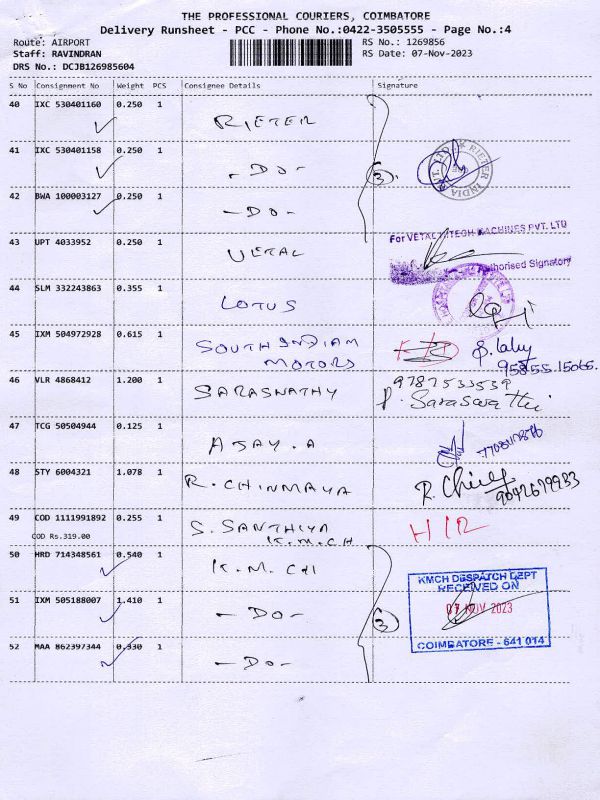 THE PROFESSIONAL COURIERS, COIMBATORE
Delivery Runsheet - PCC - Phone No.:0422-3505555 - Page No.:4
Route: AIRPORT RS No.: 1269856
Staff: RAVINDRAN RS Date: 07-Nov-2023
DRS No.: DCJB126985604
S No Consignment No Weight PCS Consignee Details Signature
40 IXC 530401160 0.250 1
RIETER
41 IXC 530401158 0.250 1
-DO- 3
RIETER INDIA PVT. LTD.
42 BWA 100003127 0.250 1
-DO-
43 UPT 4033952 0.250 1 For VETAL HITECH MACHINES PVT. LTD
VETAL
Authorised Signatory
44 SLM 332243863 0.355 1
LOTUS
45 IXM 504972928 0.615 1
SOUTH INDIAN
MOTORS 95855.15066.
46 VLR 4868412 1.200 1 9787533539
SARASWATHY P. Sarasvathi
47 TCG 50504944 0.125 1
AJAY.A
48 STY 6004321 1.078 1
R. CHINMAYA R.
9042679933
49 COD 1111991892 0.255 1
S. SANTHIYA
COD Rs.319.00 K.M.C.H
50 HRD 714348561 0.540 1
K.M.CH
KMCH DESPATCH DEPT
RECEIVED ON
51 IXM 505188007 1.410 1 07 NOV 2023
-DO- 3
COIMBATORE - 641 014
52 MAA 862397344 0.330 1
-DO-